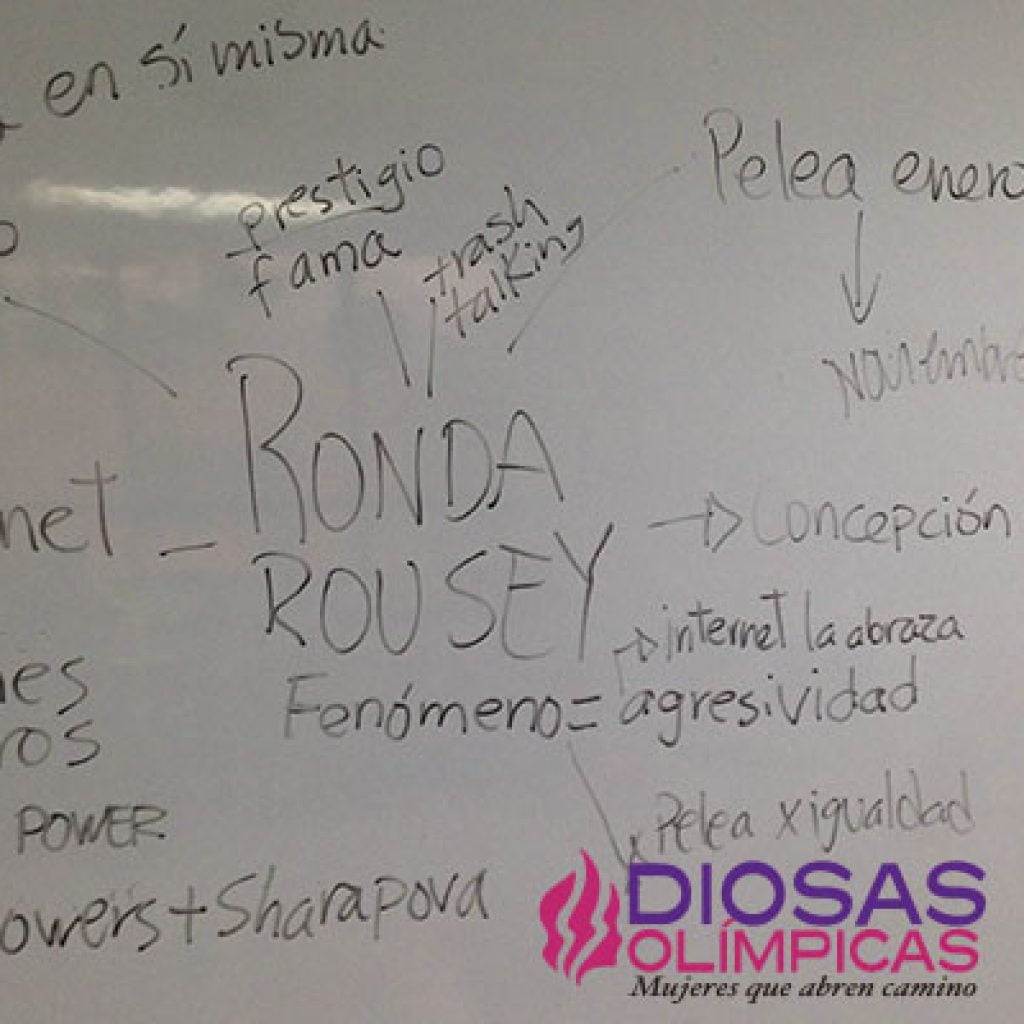 en sí misma
prestigio
fama
trash
talking
Pelea enero
Noviembre
RONDA
ROUSEY
net
Concepción
internet la abraza
Fenómeno = agresividad
nes
ros
POWER
Pelea x igualdad
owers + Sharapova
DIOSAS
OLÍMPICAS
Mujeres que abren camino